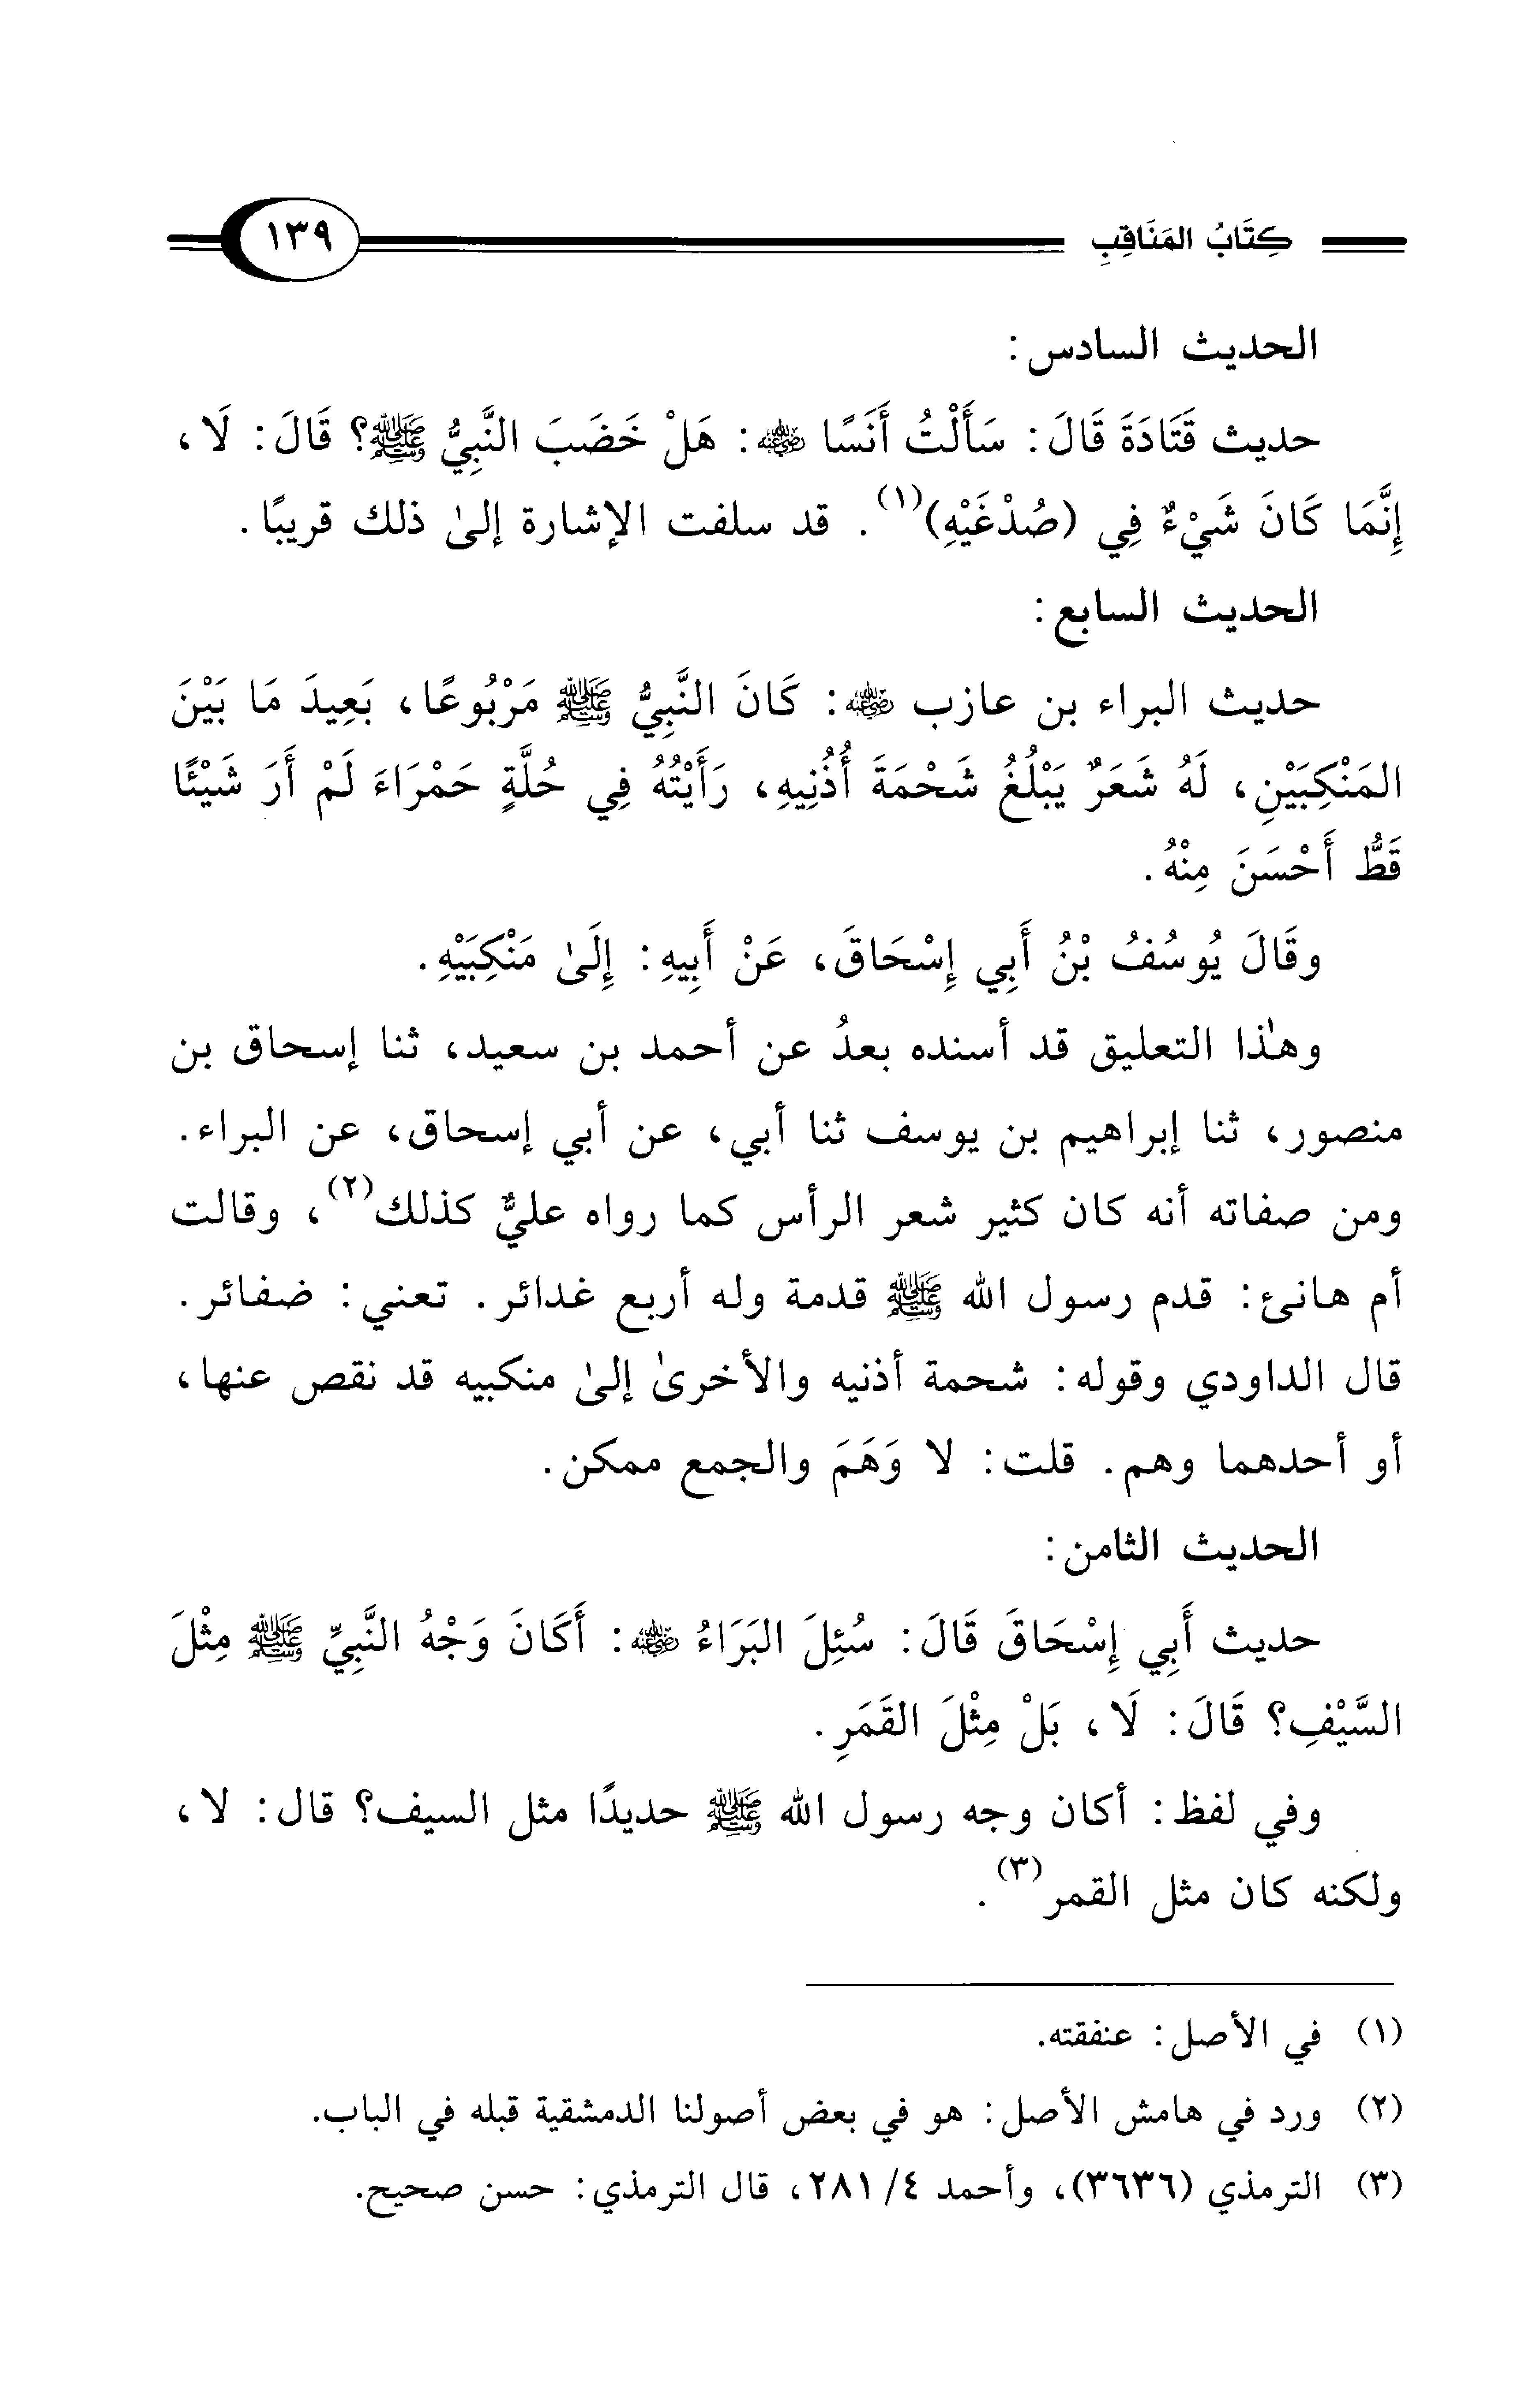 كِتَابُ المَنَاقِبِ ١٣٩
الحديث السادس:
حديث قَتَادَةَ قَالَ: سَأَلْتُ أَنَسًا ﵁: هَلْ خَضَبَ النَّبِيُّ ﷺ؟ قَالَ: لَا،
إِنَّمَا كَانَ شَيْءٌ فِي (صُدْغَيْهِ)(١). قد سلفت الإشارة إلىٰ ذلك قريبًا.
الحديث السابع:
حديث البراء بن عازب ﵁: كَانَ النَّبِيُّ ﷺ مَرْبُوعًا، بَعِيدَ مَا بَيْنَ
المَنْكِبَيْنِ، لَهُ شَعَرٌ يَبْلُغُ شَحْمَةَ أُذُنِيهِ، رَأَيْتُهُ فِي حُلَّةٍ حَمْرَاءَ لَمْ أَرَ شَيْئًا
قَطُّ أَحْسَنَ مِنْهُ.
وقَالَ يُوسُفُ بْنُ أَبِي إِسْحَاقَ، عَنْ أَبِيهِ: إِلَىٰ مَنْكِبَيْهِ.
وهٰذا التعليق قد أسنده بعدُ عن أحمد بن سعيد، ثنا إسحاق بن
منصور، ثنا إبراهيم بن يوسف ثنا أبي، عن أبي إسحاق، عن البراء.
ومن صفاته أنه كان كثير شعر الرأس كما رواه عليٌّ كذلك(٢)، وقالت
أم هانئ: قدم رسول الله ﷺ قدمة وله أربع غدائر. تعني: ضفائر.
قال الداودي وقوله: شحمة أذنيه والأخرىٰ إلىٰ منكبيه قد نقص عنها،
أو أحدهما وهم. قلت: لا وَهَمَ والجمع ممكن.
الحديث الثامن:
حديث أَبِي إِسْحَاقَ قَالَ: سُئِلَ البَرَاءُ ﵁: أَكَانَ وَجْهُ النَّبِيِّ ﷺ مِثْلَ
السَّيْفِ؟ قَالَ: لَا، بَلْ مِثْلَ القَمَرِ.
وفي لفظ: أكان وجه رسول الله ﷺ حديدًا مثل السيف؟ قال: لا،
ولكنه كان مثل القمر(٣).
(١) في الأصل: عنفقته.
(٢) ورد في هامش الأصل: هو في بعض أصولنا الدمشقية قبله في الباب.
(٣) الترمذي (٣٦٣٦)، وأحمد ٤/ ٢٨١، قال الترمذي: حسن صحيح.